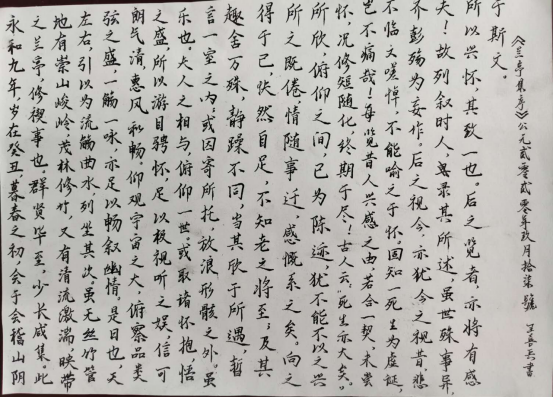 永和九年岁在癸丑,暮春之初会于会稽山阴
之兰亭,修禊事也。群贤毕至,少长咸集。此
地有崇山峻岭,茂林修竹,又有清流激湍,映带
左右,引以为流觞曲水,列坐其次。虽无丝竹管
弦之盛,一觞一咏,亦足以畅叙幽情。是日也,天
朗气清,惠风和畅。仰观宇宙之大,俯察品类
之盛,所以游目骋怀,足以极视听之娱,信可
乐也。夫人之相与,俯仰一世,或取诸怀抱,悟
言一室之内;或因寄所托,放浪形骸之外。虽
趣舍万殊,静躁不同,当其欣于所遇,暂
得于己,快然自足,不知老之将至;及其
所之既倦,情随事迁,感慨系之矣。向之
所欣,俯仰之间,已为陈迹,犹不能不以之兴
怀,况修短随化,终期于尽!古人云,死生亦大矣。
岂不痛哉!每览昔人兴感之由,若合一契,未尝
不临文嗟悼,不能喻之于怀。固知一死生为虚诞,
齐彭殇为妄作。后之视今,亦犹今之视昔,悲
夫!故列叙时人,录其所述,虽世殊事异,
所以兴怀,其致一也。后之览者,亦将有感
于斯文。
《兰亭集序》公元贰零贰零年玖月拾柒號